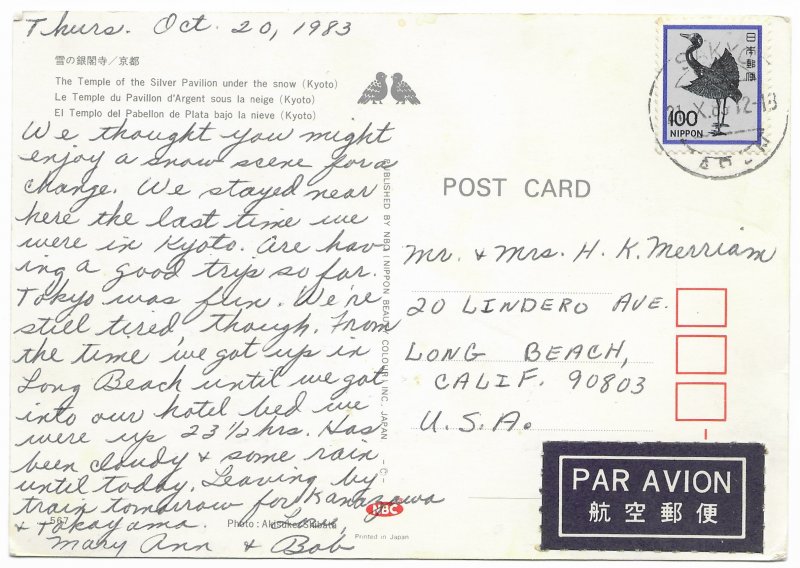 Thurs. Oct. 20, 1983
雪の銀閣寺／京都
The Temple of the Silver Pavilion under the snow (Kyoto)
Le Temple du Pavillon d'Argent sous la neige (Kyoto)
El Templo del Pabellon de Plata bajo la nieve (Kyoto)
We thought you might
enjoy a snow scene for a
change. We stayed near
here the last time we
were in Kyoto. Are hav-
ing a good trip so far.
Tokyo was fun. We're
still tired though. From
the time we got up in
Long Beach until we got
into our hotel bed we
were up 23 1/2 hrs. Has
been cloudy & some rain
until today. Leaving by
train tomorrow for Kanazawa
& Takayama. Love,
Mary Ann & Bob
567
Photo: Akisuke Shibata
NBC
Printed in Japan
PUBLISHED BY NBC (NIPPON BEAUTY COLOUR) INC. JAPAN -C-
POST CARD
日本郵便
100
NIPPON
X 12-18
JAPAN
Mr. & Mrs. H. K. Merriam
20 LINDERO AVE.
LONG BEACH,
CALIF. 90803
U.S.A.
PAR AVION
航空郵便